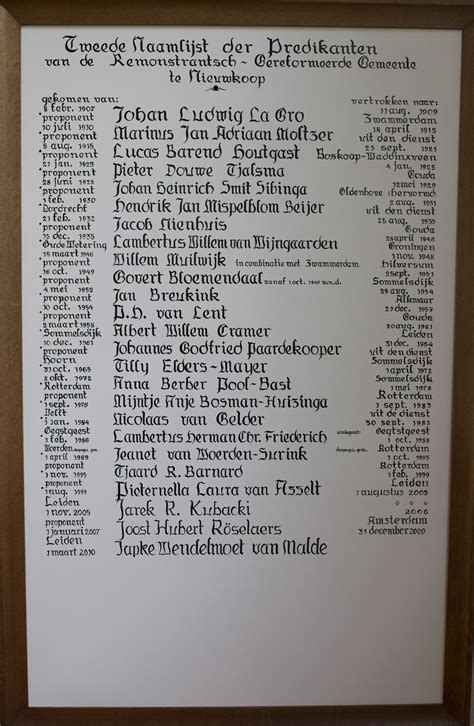 Tweede Naamlijst der Predikanten
van de Remonstrantsch-Gereformeerde Gemeente
te Nieuwkoop
gekomen van: vertrokken naar:
8 febr. 1907 11 aug. 1909
proponent Johan Ludwig La Gro Zwammerdam
10 juli 1910 18 april 1915
proponent Marinus Jan Adriaan Moltzer uit den dienst
8 aug. 1915 25 sept. 1921
proponent Lucas Barend Houtgast Boskoop-Waddinxveen
1925 4 jan. 1925
proponent Pieter Douwe Tjalsma Gouda
28 juni 1925 12 mei 1929
proponent Johan Heinrich Smit Sibinga Oldenhove (hervormd)
2 febr. 1930 2 aug. 1931
Dordrecht Hendrik Jan Mispelblom Beijer uit den dienst
21 fb. 1932 25 aug. 1935
proponent Jacob Nienhuis Gouda
15 dec. 1935 28 april 1946
Oude Wetering Lambertus Willem van Wijngaarden Groningen
15 maart 1946 1 nov. 1948
proponent Willem Mulwijk in combinatie met Zwammerdam Hilversum
16 oct. 1949 2 sept. 1951
proponent Govert Bloemendaal vanaf 1 oct. 1947 w.n.d. Sommelsdijk
4 mei 1952 29 aug. 1954
proponent Jan Breukink Alkmaar
1957
proponent P.H. van Lent Gouda
2 maart 1958 20 aug. 1961
Sommelsdijk Albert Willem Cramer Leiden
10 dec. 1961 31 dec. 1964
proponent Johannes Godfried Paardekooper uit den dienst
Hoorn Sommelsdijk
31 oct. 1965 Tilly Elders-Mayer 1 april 1972
8 okt. 1972 Sommelsdijk
Rotterdam Anna Berber Pool-Bast 1 mei 1978
proponent Rotterdam
1 sept. 1978 Mijntje Anje Bosman-Huizinga 1 sept. 1983
Delft uit de dienst
1 jan. 1984 Nicolaas van Gelder
Oegstgeest Oegstgeest
1 febr. 1986 Lambertus Herman Chr. Friederich 1 oct. 1988
Woerden Rotterdam
1 april 1989 Jeanet van Woerden-Surink 1 oct. 1995
proponent Rotterdam
1 nov. 1995 Tjaard R. Barnard 1999
proponent Leiden
1 aug. 1999 Pieternella Laura van Asselt 1 augustus 2005
Leiden
1 nov. 2005 Jarek R. Kubacki 2006
proponent Amsterdam
1 januari 2007 Joost Hubert Röselaers 31 december 2009
Leiden
1 maart 2010 Japke Wendelmoet van Malde